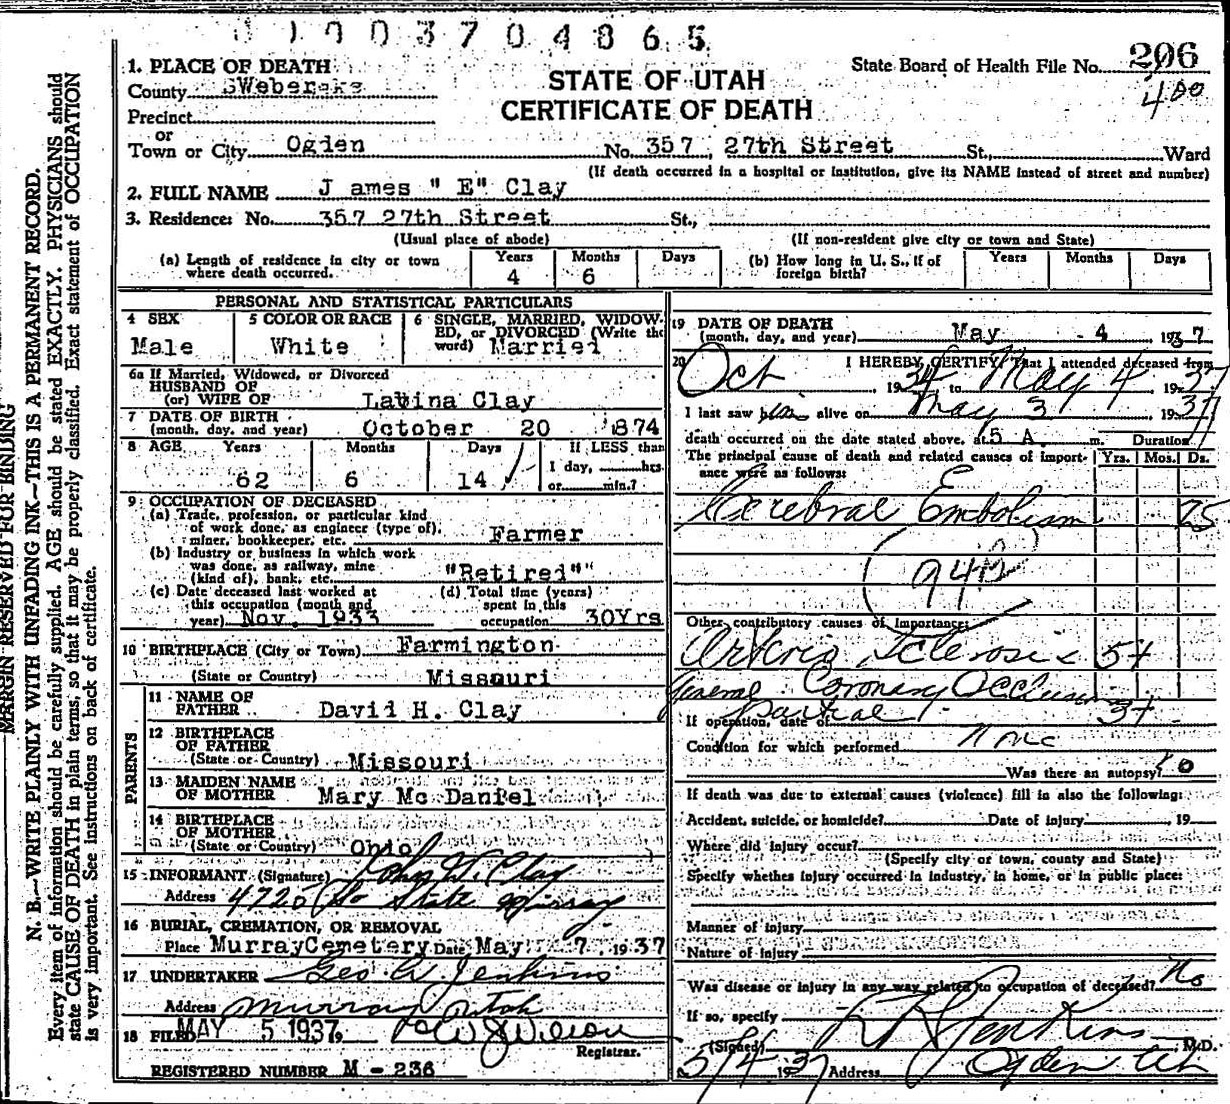 01003704865
1. PLACE OF DEATH
County
STATE OF UTAH
CERTIFICATE OF DEATH
State Board of Health File No. 206
400
Precinct
or
Town or City Ogden No. 357, 27th Street St., Ward
(If death occurred in a hospital or institution, give its NAME instead of street and number)
2. FULL NAME J ames " E" Clay
3. Residence: No. 357 27th Street St.,
(Usual place of abode) (If non-resident give city or town and State)
(a) Length of residence in city or town where death occurred. Years 4 Months 6 Days
(b) How long in U. S., if of foreign birth? Years Months Days
PERSONAL AND STATISTICAL PARTICULARS
4 SEX Male
5 COLOR OR RACE White
6 SINGLE, MARRIED, WIDOW-
ED, or DIVORCED (Write the
word) Married
6a If Married, Widowed, or Divorced
HUSBAND OF
(or) WIFE OF Labina Clay
7 DATE OF BIRTH
(month, day, and year) October 20 1874
8 AGE Years 62 Months 6 Days 14
If LESS than
1 day, hrs.
or min.?
9 OCCUPATION OF DECEASED
(a) Trade, profession, or particular kind
of work done, as engineer (type of),
miner, bookkeeper, etc. Farmer
(b) Industry or business in which work
was done, as railway, mine
(kind of), bank, etc. "Retired""
(c) Date deceased last worked at
this occupation (month and
year) Nov. 1933
(d) Total time (years)
spent in this
occupation 30Yrs
10 BIRTHPLACE (City or Town) Farmington
(State or Country) Missouri
PARENTS
11 NAME OF
FATHER David H. Clay
12 BIRTHPLACE
OF FATHER
(State or Country) Missouri
13 MAIDEN NAME
OF MOTHER Mary Mc Daniel
14 BIRTHPLACE
OF MOTHER
(State or Country) Ohio
15 INFORMANT (Signature) John W. Clay
Address 4720 So State Murray
16 BURIAL, CREMATION, OR REMOVAL
Place MurrayCemetery Date May 7, 1937
17 UNDERTAKER Geo W Jenkins
Address Murray Utah
18 FILED MAY 5 1937, W J Wilson
Registrar.
REGISTERED NUMBER M - 236
19 DATE OF DEATH
(month, day, and year) May 4 1937
20 I HEREBY CERTIFY That I attended deceased from
Oct 1934 to May 4 1937
I last saw him alive on May 3 1937
death occurred on the date stated above, at 5 A. m. Duration
The principal cause of death and related causes of import-
ance were as follows: Yrs. Mos. Ds.
Cerebral Embolism
Other contributory causes of importance:
Arterio Sclerosis 5+
General Coronary Occlusion
partial 3+
If operation, date of
Condition for which performed None
Was there an autopsy?
If death was due to external causes (violence) fill in also the following:
Accident, suicide, or homicide? Date of injury 19
Where did injury occur?
(Specify city or town, county and State)
Specify whether injury occurred in industry, in home, or in public place:
Manner of injury
Nature of injury
Was disease or injury in any way related to occupation of deceased? No
If so, specify
(Signed) Jenkins M.D.
5/4 1937 Address Ogden Utah
MARGIN RESERVED FOR BINDING
N. B.—WRITE PLAINLY WITH UNFADING INK—THIS IS A PERMANENT RECORD.
Every item of information should be carefully supplied. AGE should be stated EXACTLY. PHYSICIANS should
state CAUSE OF DEATH in plain terms, so that it may be properly classified. Exact statement of OCCUPATION
is very important. See instructions on back of certificate.